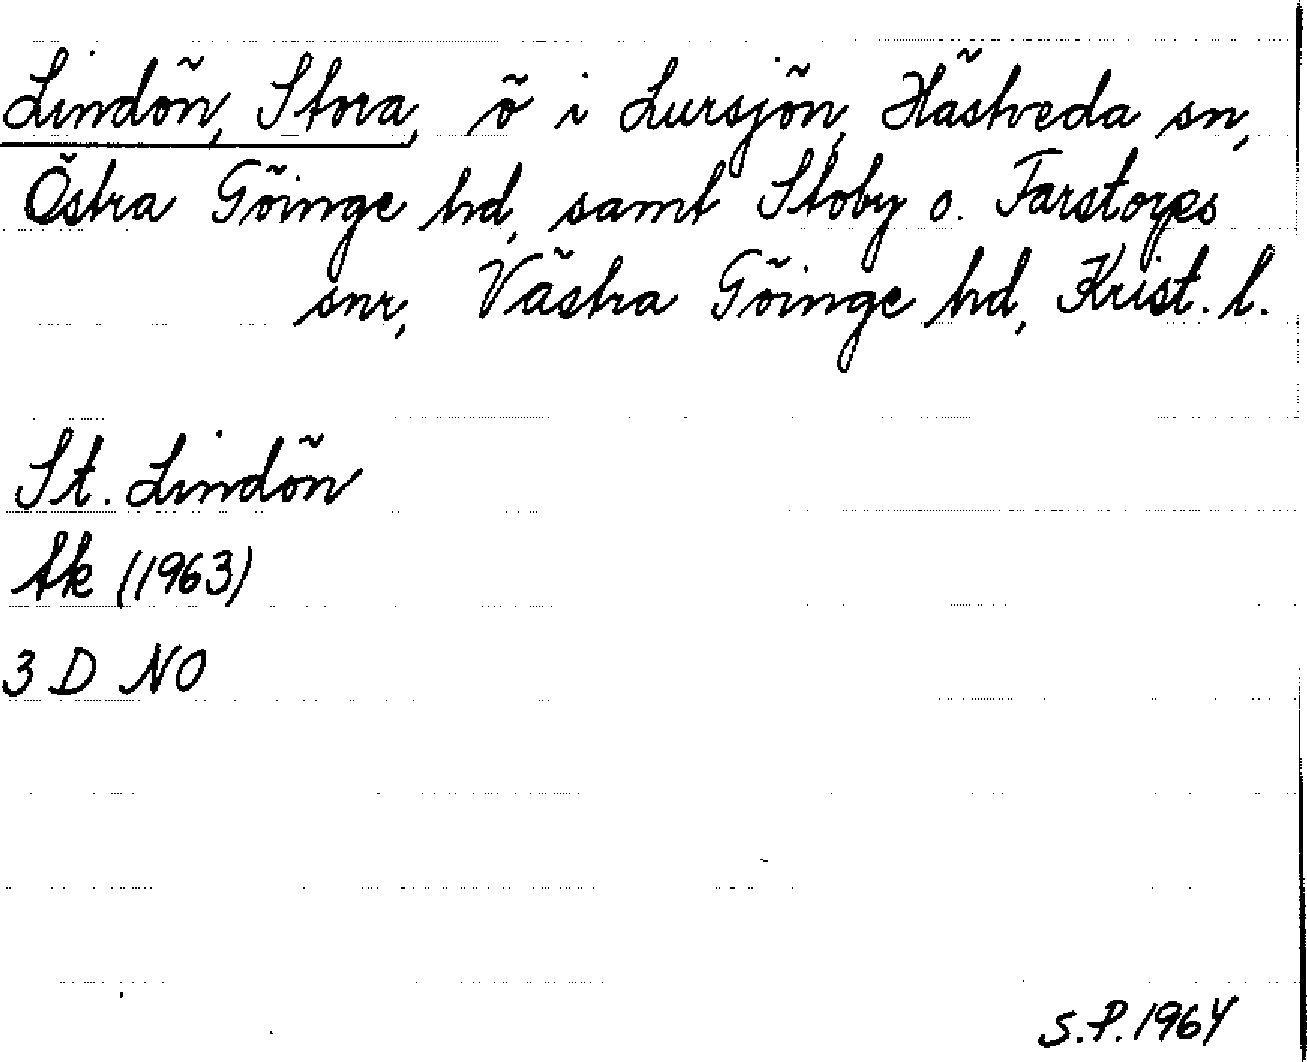 Lindön, Stora, ö i Lursjön, Hästveda sn,
Östra Göinge hd, samt Stoby o. Farstorps
snr, Västra Göinge hd, Krist. l.
St. Lindön
Ak (1963)
3 D NO
S.P. 1964